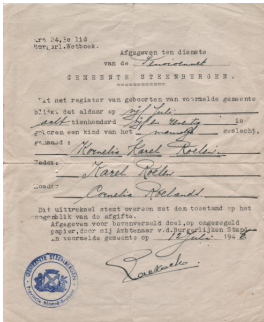 Art 24,3e lid
Burgerl.Wetboek.
Afgegeven ten dienste
van de
GEMEENTE STEENBERGEN.
Uit het register van geboorten van voormelde gemeente
blijkt dat aldaar op vijf Juli
acht tienhonderd vijf en veertig is
geboren een kind van het mannelijk geslacht,
genaamd:
Kornelis Karel Roelen
Vader:
Karel Roelen
Moeder:
Cornelia Roelands
Dit uittreksel stemt overeen met den toestand op het
oogenblik van de afgifte.
Afgegeven voor bovengemeld doel, op ongezegeld
papier, door mij Ambtenaar v.d.Burgelijken Stand
in voormelde gemeente op 12 Juli 194